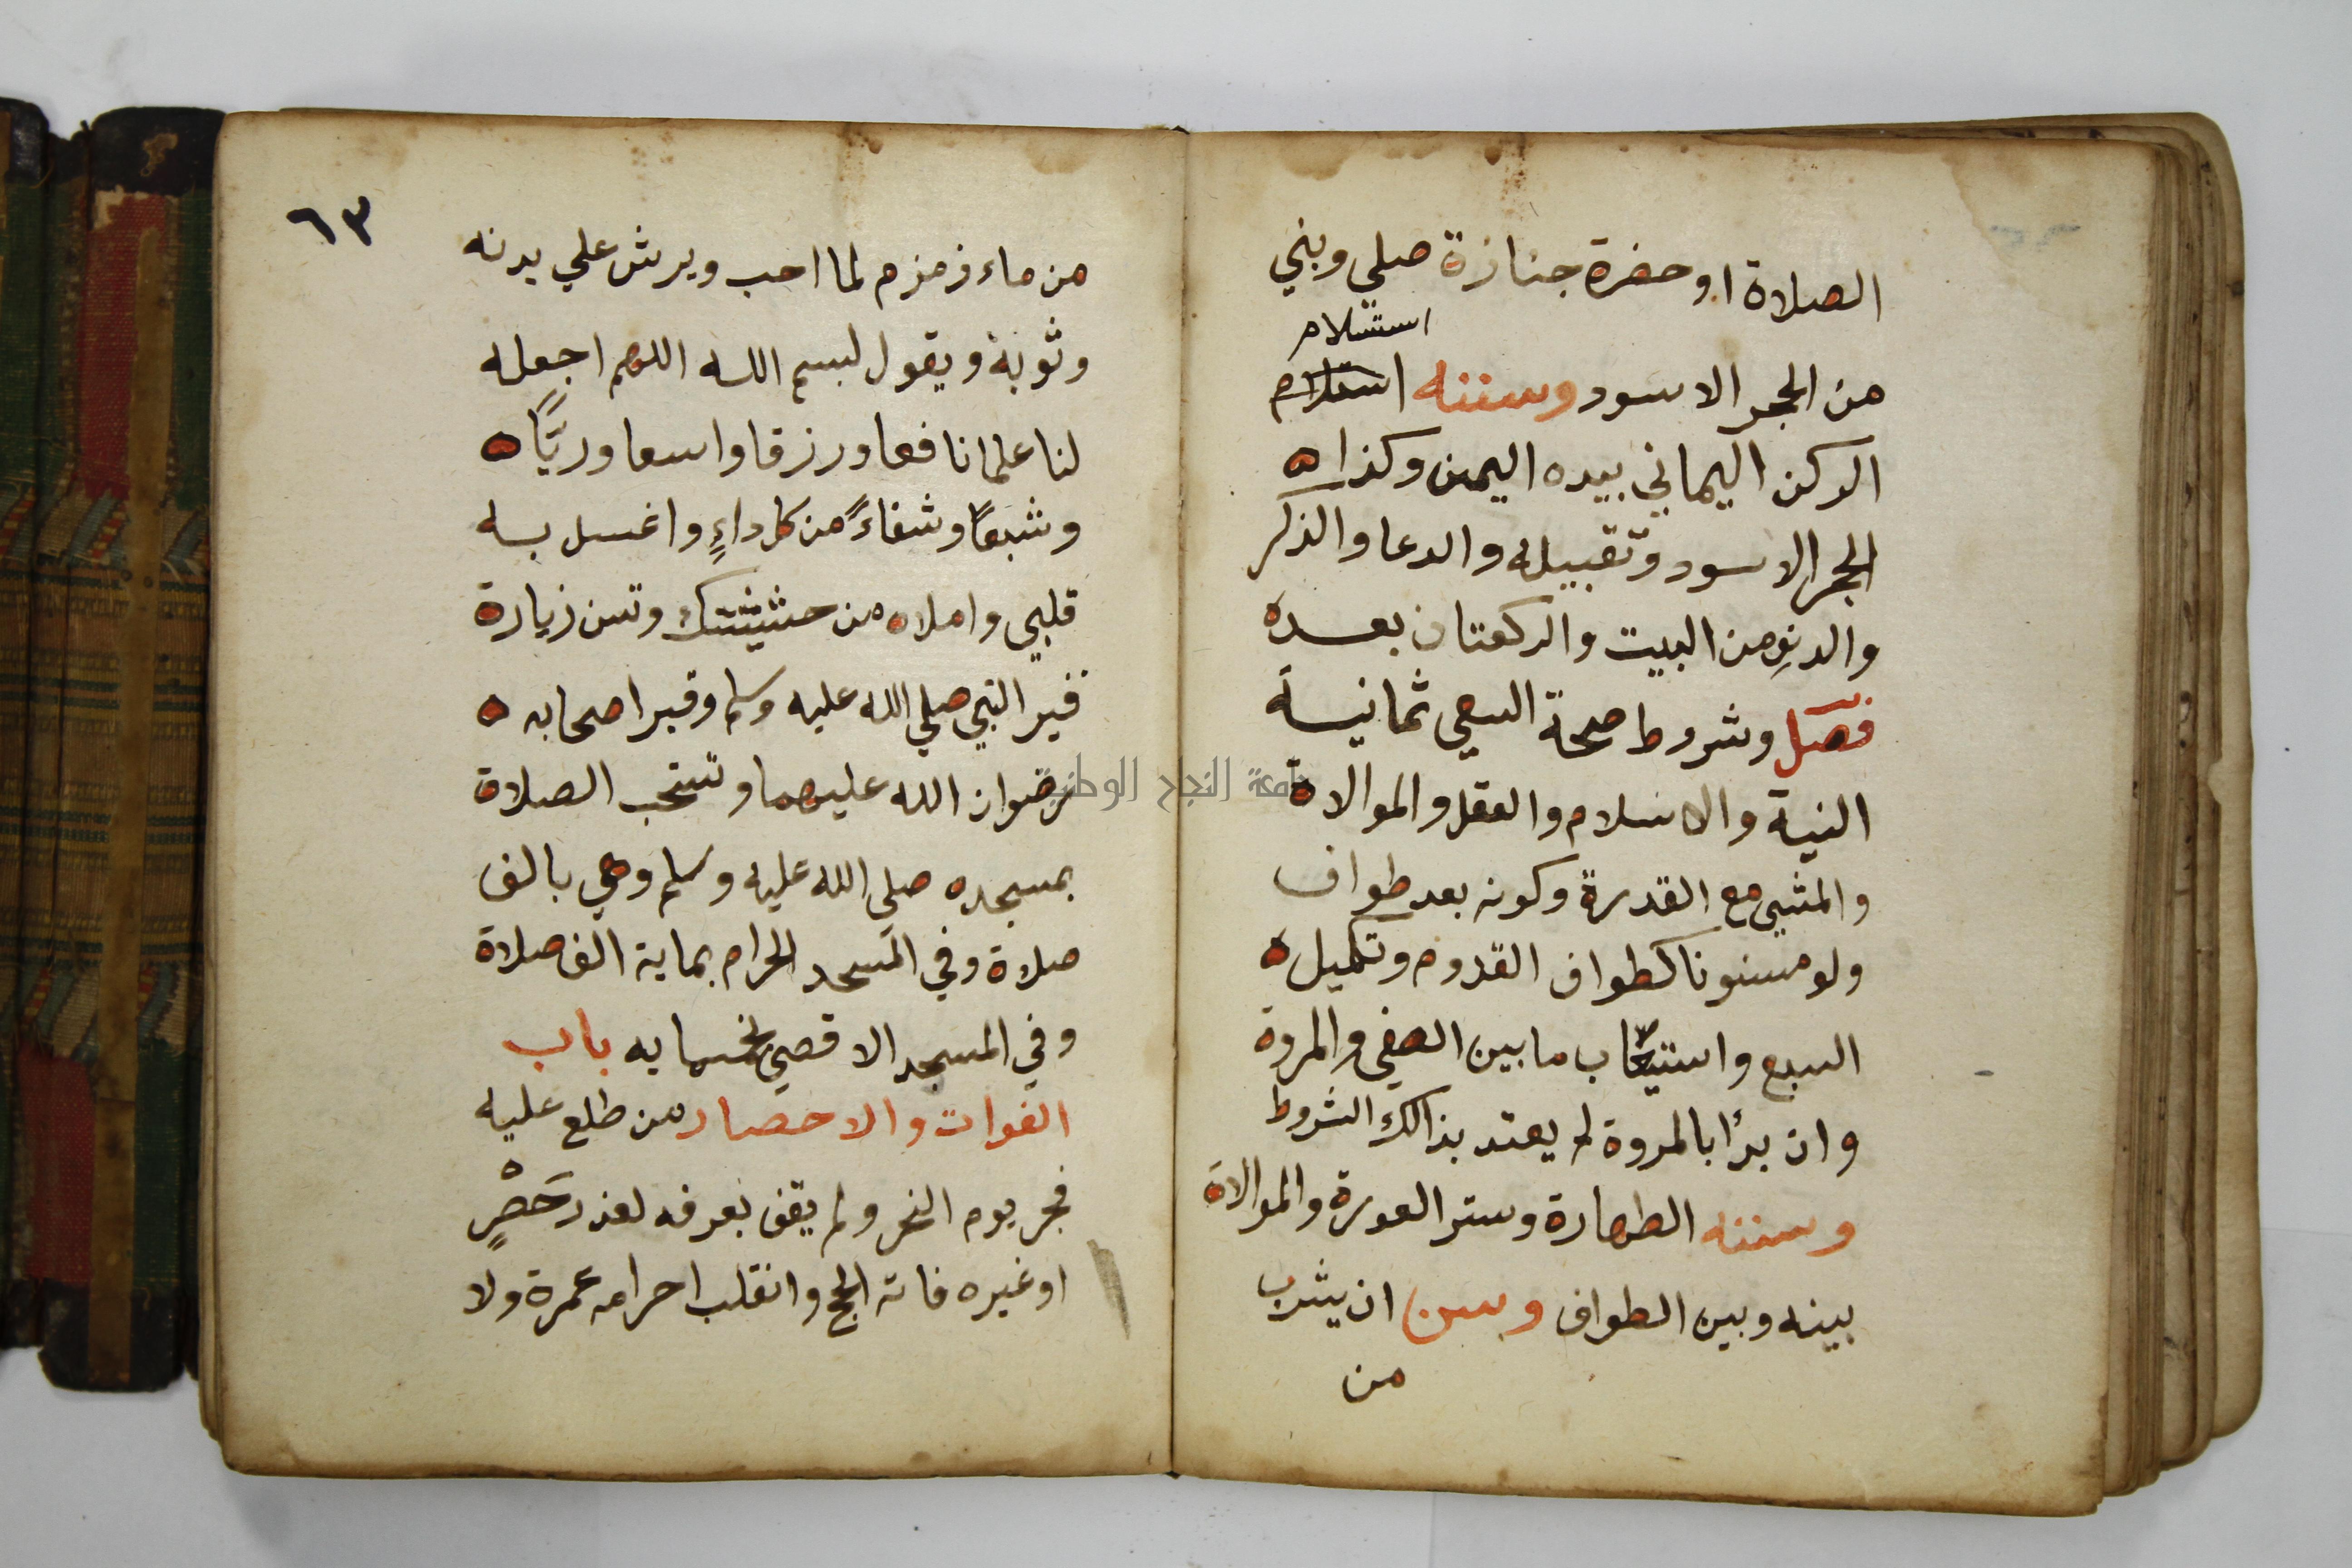 الصلاة او حضرة جنازة صلي وبني
استلام
من الحجر الاسود وسننه استلام
الركن اليماني بيده اليمن وكذا ه
الحجر الاسود وتقبيله والدعا والذكر
والدنوِ من البيت والركعتان بعده
فصل وشروط صحة السعي ثمانية
النية والاسلام والعقل والموالاة
والمشي مع القدرة وكونه بعد طواف
ولو مسنونا كطواف القدوم وتكميل ه
السبع واستيعاب ما بين الصفي والمروة
وان بدأ بالمروة لم يعتد بذالك الشروط
وسننه الطهارة وستر العورة والموالاة
بينه وبين الطواف وسن ان يشرب
من
٦٣
من ماء زمزم لما احب ويرش علي بدنه
وثوبة ويقول لبسم الله اللهم اجعله
لنا علما نافعا ورزقا واسعا وريًّا ه
وشبعًا وشفاءً من كل داءٍ واغسل به
قلبي واملاه من حشيتك وتسن زيارة
قبر النبي صلي الله عليه وسلم وقبر اصحابه ه
رضوان الله عليهما وتستحب الصلاة
بمسجده صلي الله عليه وسلم وهي بالف
صلاة وفي المسجد الحرام بماية الف صلاة
وفي المسجد الاقصي بخمسمايه باب
الفوات والاحصار من طلع عليه
فجر يوم النحر ولم يقف بعرفه لعذر حَصْرٍ
او غيره فاته الحج وانقلب احرامه عمرة ولا
جامعة النجاح الوطنية